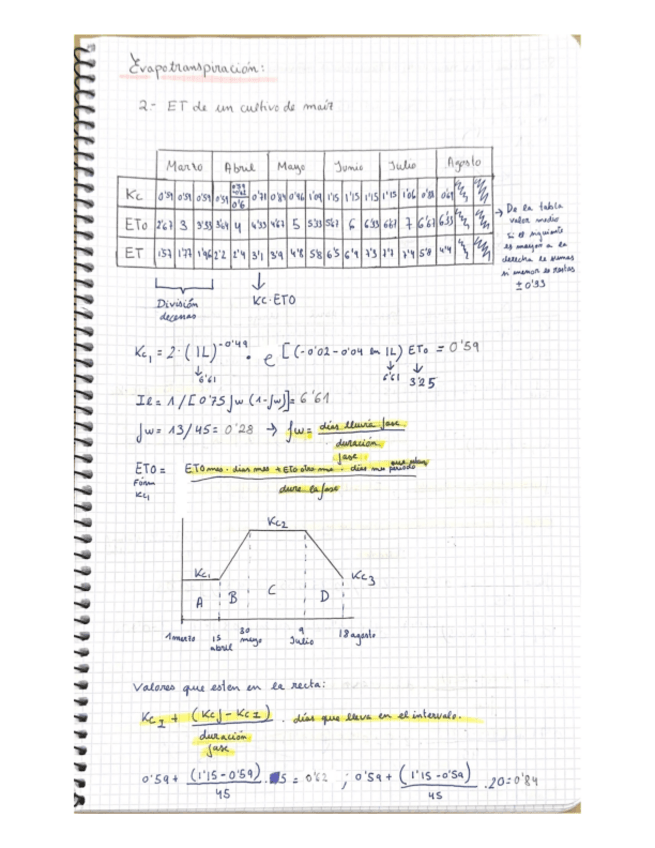 Evapotranspiración:
2.- ET de un cultivo de maíz
Marzo Abril Mayo Junio Julio Agosto
Kc 0'59 0'59 0'59 0'59 0'59 0'62 0'6 0'71 0'84 0'96 1'09 1'15 1'15 1'15 1'15 1'06 0'88 0'69
ETo 2'67 3 3'33 3'67 4 4'33 4'67 5 5'33 5'67 6 6'33 6'67 7 6'67 6'33
ET 1'57 1'77 1'96 2'2 2'4 3'1 3'9 4'8 5'8 6'5 6'9 7'3 7'7 7'4 5'8 4'4
→ De la tabla
valor medio
si el siguiente
es mayor a la
derecha le sumas
si menor le restas
± 0'33
División
decenas
KC·ETO
Kc₁ = 2· (IL)^-0'49 · e [(-0'02-0'04 ln IL) ETo = 0'59
6'61 6'61 3'25
Il = 1 / [0'75 fw (1-fw)] = 6'61
fw = 13/45 = 0'28 → fw = días lluvia fase
duración
fase
ETO = ETO mes · días mes + ETO otro mes · días mes periodo
Fórm
Kc₁
dure la fase
Kc₂
Kc₁ Kc₃
A B C D
1 marzo 15 abril 30 mayo 9 Julio 18 agosto
Valores que estén en la recta:
Kc I + (Kc J - Kc I) · días que lleva en el intervalo.
duración
fase
0'59 + (1'15 - 0'59) · 5 = 0'62 ; 0'59 + (1'15 - 0'59) · 20 = 0'84
45 45